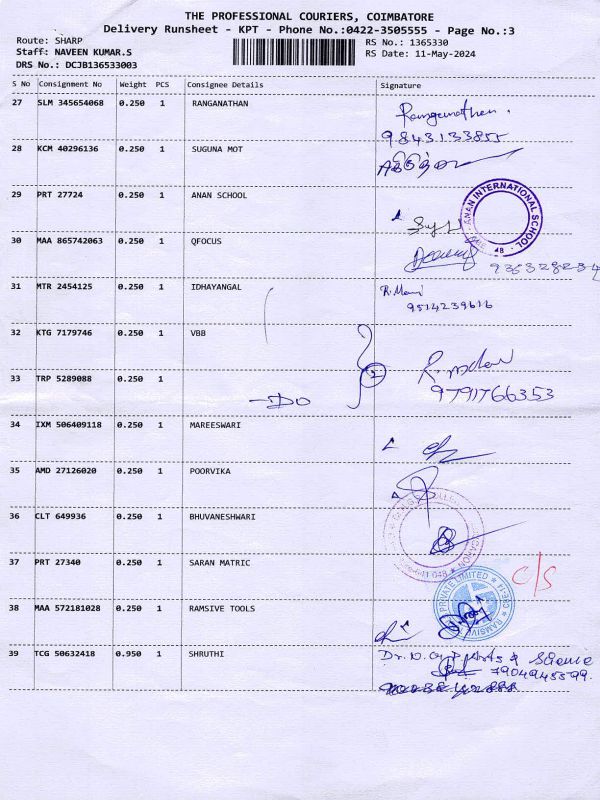 THE PROFESSIONAL COURIERS, COIMBATORE
Delivery Runsheet - KPT - Phone No.:0422-3505555 - Page No.:3
Route: SHARP
RS No.: 1365330
Staff: NAVEEN KUMAR.S
RS Date: 11-May-2024
DRS No.: DCJB136533003
S No Consignment No Weight PCS Consignee Details Signature
27 SLM 345654068 0.250 1 RANGANATHAN Ranganathan.
9843133855
28 KCM 40296136 0.250 1 SUGUNA MOT
29 PRT 27724 0.250 1 ANAN SCHOOL
ANAN INTERNATIONAL SCHOOL
30 MAA 865742063 0.250 1 QFOCUS
31 MTR 2454125 0.250 1 IDHAYANGAL R. Mani
9514239616
32 KTG 7179746 0.250 1 VBB
33 TRP 5289088 0.250 1 9791766353
-DO
34 IXM 506409118 0.250 1 MAREESWARI
35 AMD 27126020 0.250 1 POORVIKA
36 CLT 649936 0.250 1 BHUVANESHWARI
37 PRT 27340 0.250 1 SARAN MATRIC C/S
PRIVATE LIMITED
38 MAA 572181028 0.250 1 RAMSIVE TOOLS
39 TCG 50632418 0.950 1 SHRUTHI Dr. N.G.P Arts & Science
7904945599.